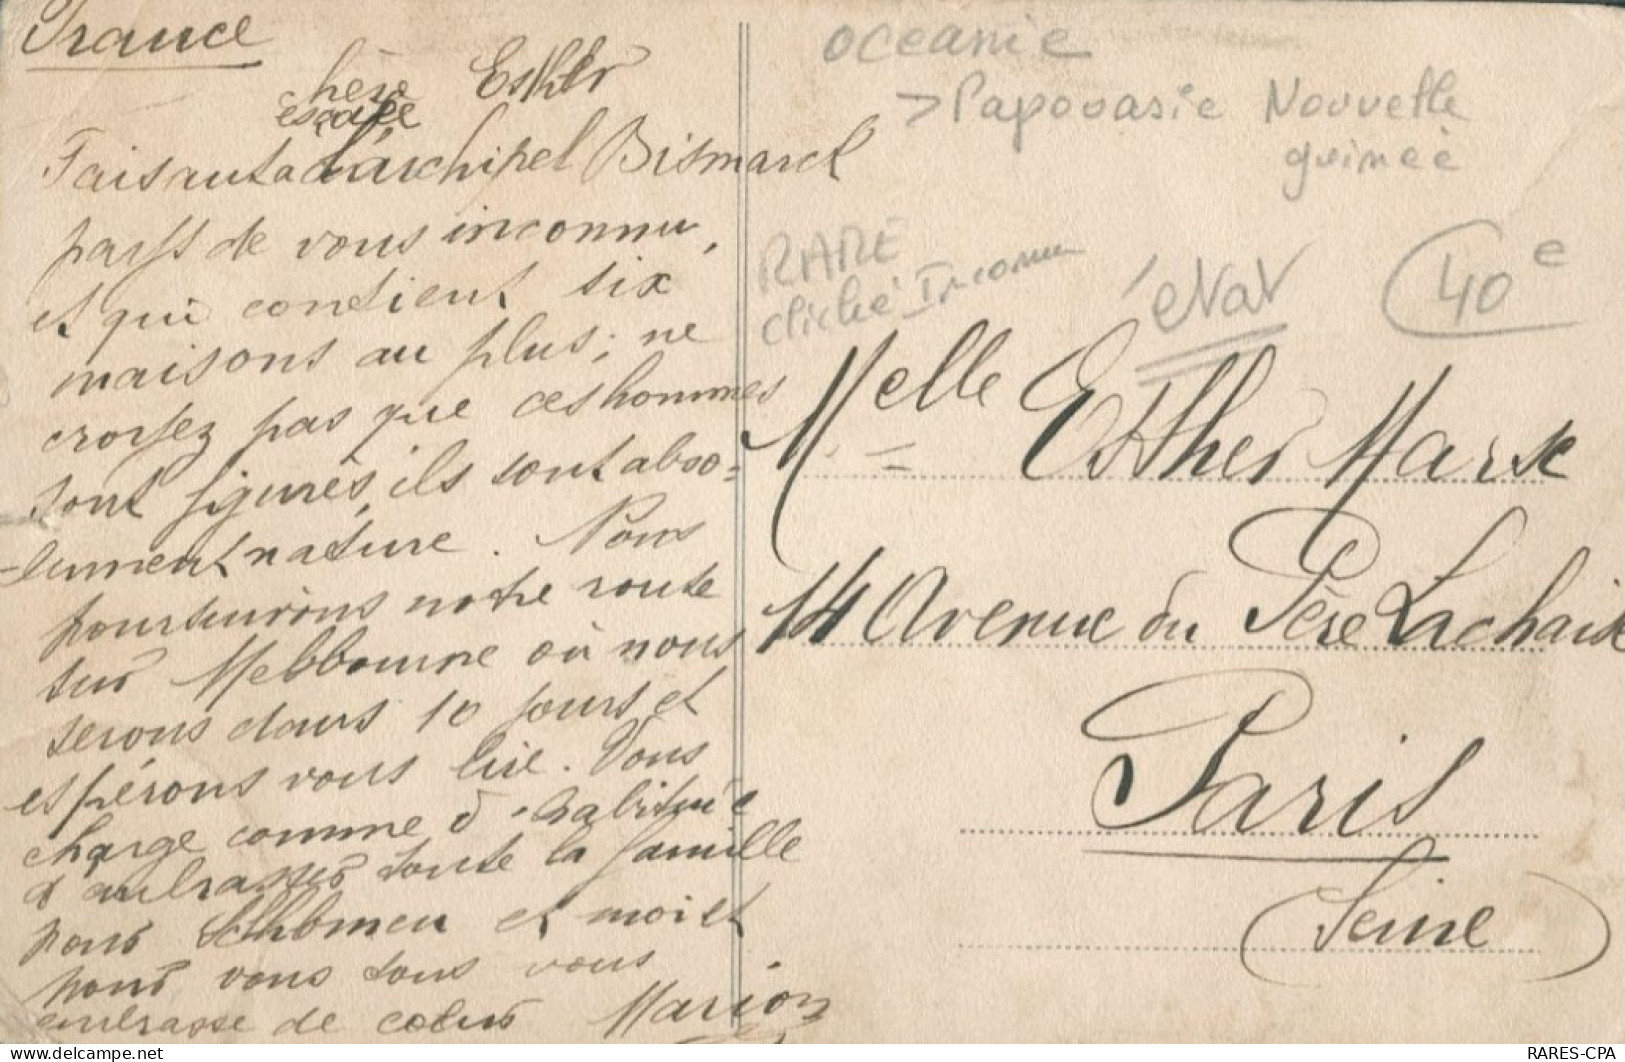 France
chère Esther
escale
Faisant à l'archipel Bismarck
pays de vous inconnu,
et qui contient six
maisons au plus; ne
croyez pas que ces hommes
sont figurés, ils sont abso-
-lument nature. Nous
poursuivons notre route
sur Melbourne où nous
serons dans 10 jours et
espérons vous lire. Vous
charge comme d'habitude
d'embrasser toute la famille
pour et moi et
pour vous tous vous
embrasse de cœur Marion
oceanie
> Papouasie Nouvelle
guinée
RARE
cliché Inconnu
40e
Melle Esther Marx
14 Avenue du Père Lachaise
Paris
(Seine)
RARES-CPA
https://www.delcampe.net